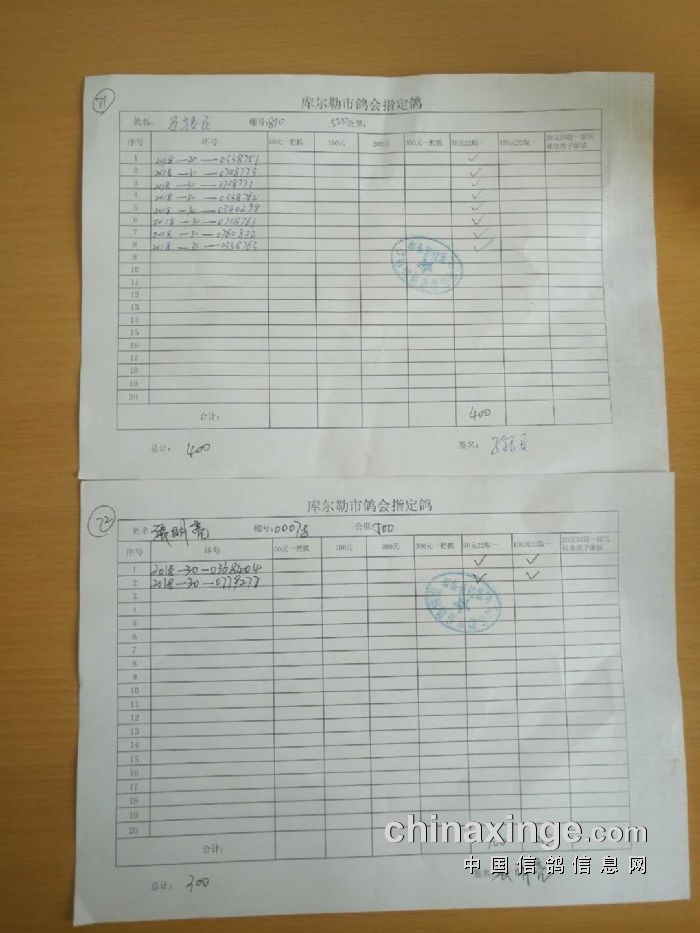 71
库尔勒市鸽会指定鸽
姓名: 棚号:810 500公里:
序号 环号 50元一把抓 100元 200元 300元一把抓 50元22取一 100元22取一
1 2018-30-0338761 ✓
2 2018-30-0708773 ✓
3 2018-30-0708771 ✓
4 2018-30-0338762 ✓
5 2018-30-0340298 ✓
6 2018-30-0708761 ✓
7 2018-30-0760822 ✓
8 2018-30-0338763 ✓
9
10
11
12
13
14
15
16
17
18
19
20
合计: 400
总计: 400 签名:
72
库尔勒市鸽会指定鸽
姓名:张明亮 棚号:00078 公里:500
序号 环号 50元一把抓 100元 200元 300元一把抓 50元22取一 100元22取一
1 2018-30-0368404 ✓ ✓
2 2018-30-0779278 ✓ ✓
3
4
5
6
7
8
9
10
11
12
13
14
15
16
17
18
19
20
合计:
总计: 300 签名:张明亮
chinaxinge.com
中国信鸽信息网